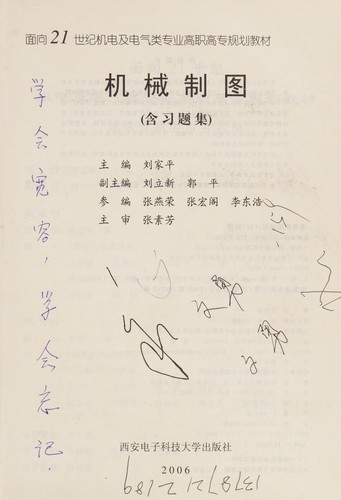 面向21世纪机电及电气类专业高职高专规划教材
机械制图
(含习题集)
主 编 刘家平
副主编 刘立新 郭 平
参 编 张燕荣 张宏阁 李东浩
主 审 张素芳
学会宽容，学会忘记.
西安电子科技大学出版社
2006